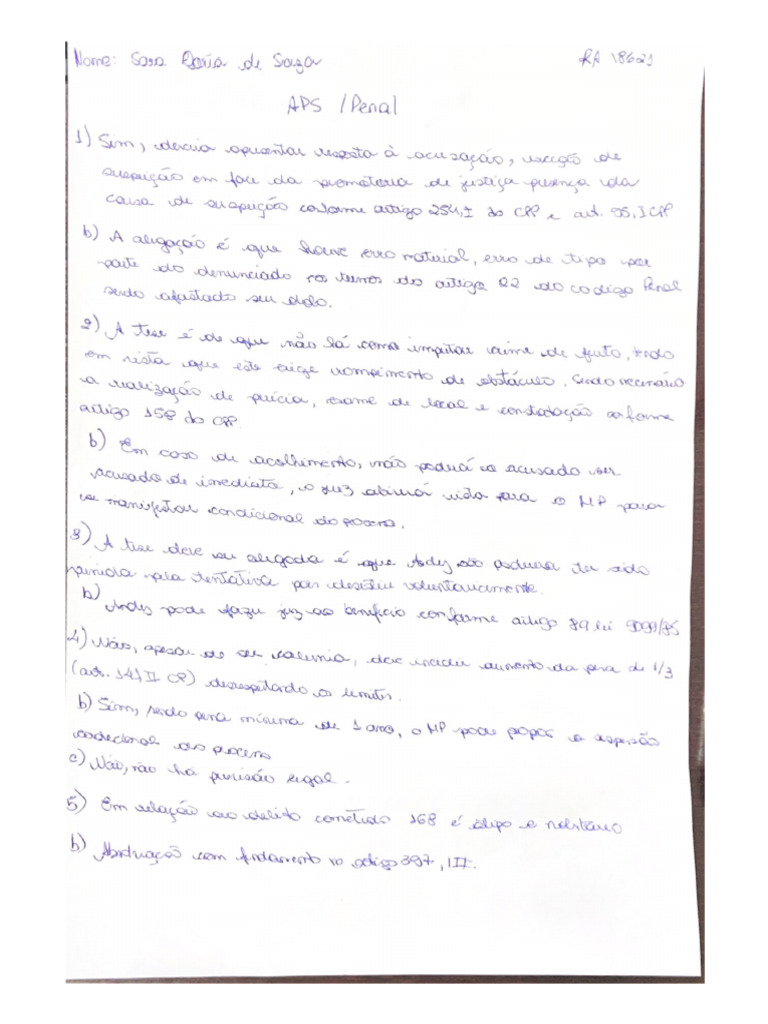 Nome: Sara Daia de Souza RA 18621
APS / Penal
1) Sim, deveria apresentar resposta à acusação, exceção de
suspeição em face da promotoria de justiça presença da
causa de suspeição conforme artigo 254, I do CPP e art. 95, I CPP
b) A alegação é que houve erro material, erro de tipo por
parte do denunciado nos termos do artigo 22 do codigo Penal
sendo afastado seu dolo.
2) A tese é de que não há como imputar crime de furto, tendo
em vista que este exige rompimento de obstáculo. Sendo necessário
a realização de pericia, exame de local e constatação conforme
artigo 158 do CPP.
b) Em caso de acolhimento, não poderá o acusado ser
acusado de imediato, o juiz abrirá vista para o MP para
se manifestar condicional do processo.
3) A tese deve ser alegada é que não poderia ter sido
punida pela tentativa pois desistiu voluntariamente.
b) pode fazer jus ao beneficio conforme artigo 89 lei 9099/95
4) Não, apesar de ser calunia, deve incidir aumento da pena de 1/3
(art. 141 II CP) desrespeitando os limites.
b) Sim, sendo pena mínima de 1 ano, o MP pode propor a suspensão
condicional do processo
c) Não, não há previsão legal.
5) Em relação ao delito cometido 168 é
b) com fundamento no artigo 397, III.